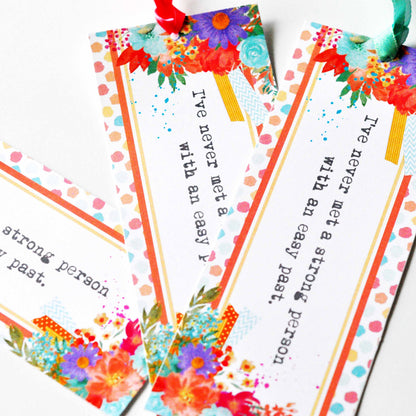 I've never met a strong person
with an easy past.
I've never met a
with an easy
strong person
past.